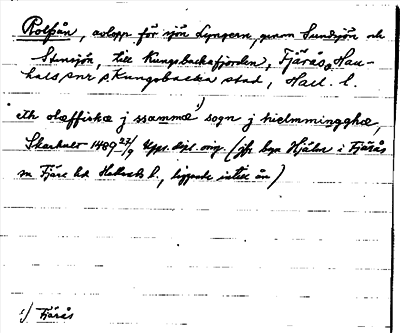 Rolfsån, avlopp för sjön Lygnern, genom Sundsjön och
Stensjön, till Kungsbackafjorden, Fjärås o Han-
hals snr o Kungsbacka stad, Hall. l.
eth olaffiskæ j ssammæ 1) sogn j hielmmingghæ,
Skarhult 1489 27/9 Upps. dpl. orig. (jfr byn Hjälm i Fjärås
sn Fjäre hd Hallands l., liggande intill ån)
1) Fjärås